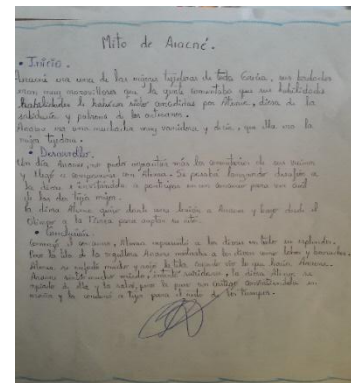 Mito de Aracné.
• Inicio.
Aracné era una de las mejores tejedoras de toda Grecia, sus bordados
eran muy maravillosos que la gente comentaba que sus habilidades
habilidades le habían sido concedidas por Atenea, diosa de la
sabiduría y patrona de los artesanos.
Aracne era una muchacha muy vanidosa y decía, que ella era la
mejor tejedora.
• Desarrollo.
Un día Aracne, no pudo aguantar más los comentarios de sus vecinos
y llegó a compararse con Atenea. Se pasaba lanzando desafíos a
la diosa e invitándola a participar en un concurso para ver cuál
de las dos tejía mejor.
La diosa Atenea quiso darle una lección a Aracne y bajó desde el
Olimpo a la Tierra para aceptar su reto.
• Conclusión.
Comenzó el concurso, Atenea representó a los dioses en todo su esplendor.
Pero la tela de la orgullosa Aracne mostraba a los dioses como lobos y borrachos.
Atenea se enfadó mucho y rajó la tela, cuando vio lo que hacía Aracne.
Aracne sintió mucho miedo, intentó suicidarse, la diosa Atenea se
apiadó de ella y la salvó, pero le puso un castigo convirtiéndola en
araña y la condenó a tejer para el resto de los tiempos.